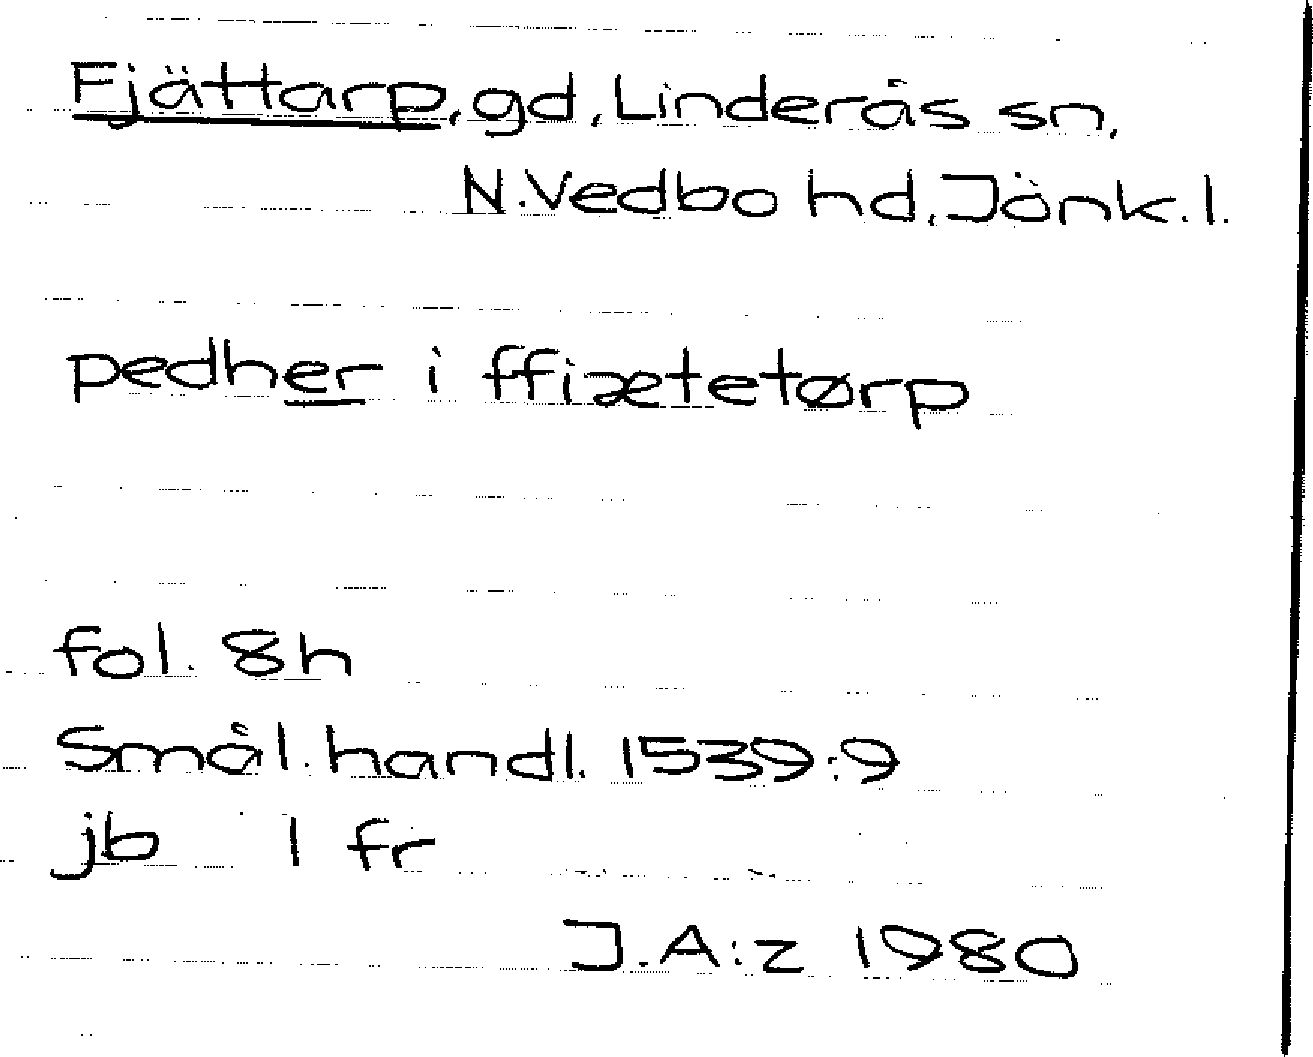 Fjättarp, gd, Linderås sn,
N. Vedbo hd, Jönk. l.
pedher i ffiætetørp
fol. 8h
Smål. handl. 1539:9
jb 1 fr
J.A:z 1980